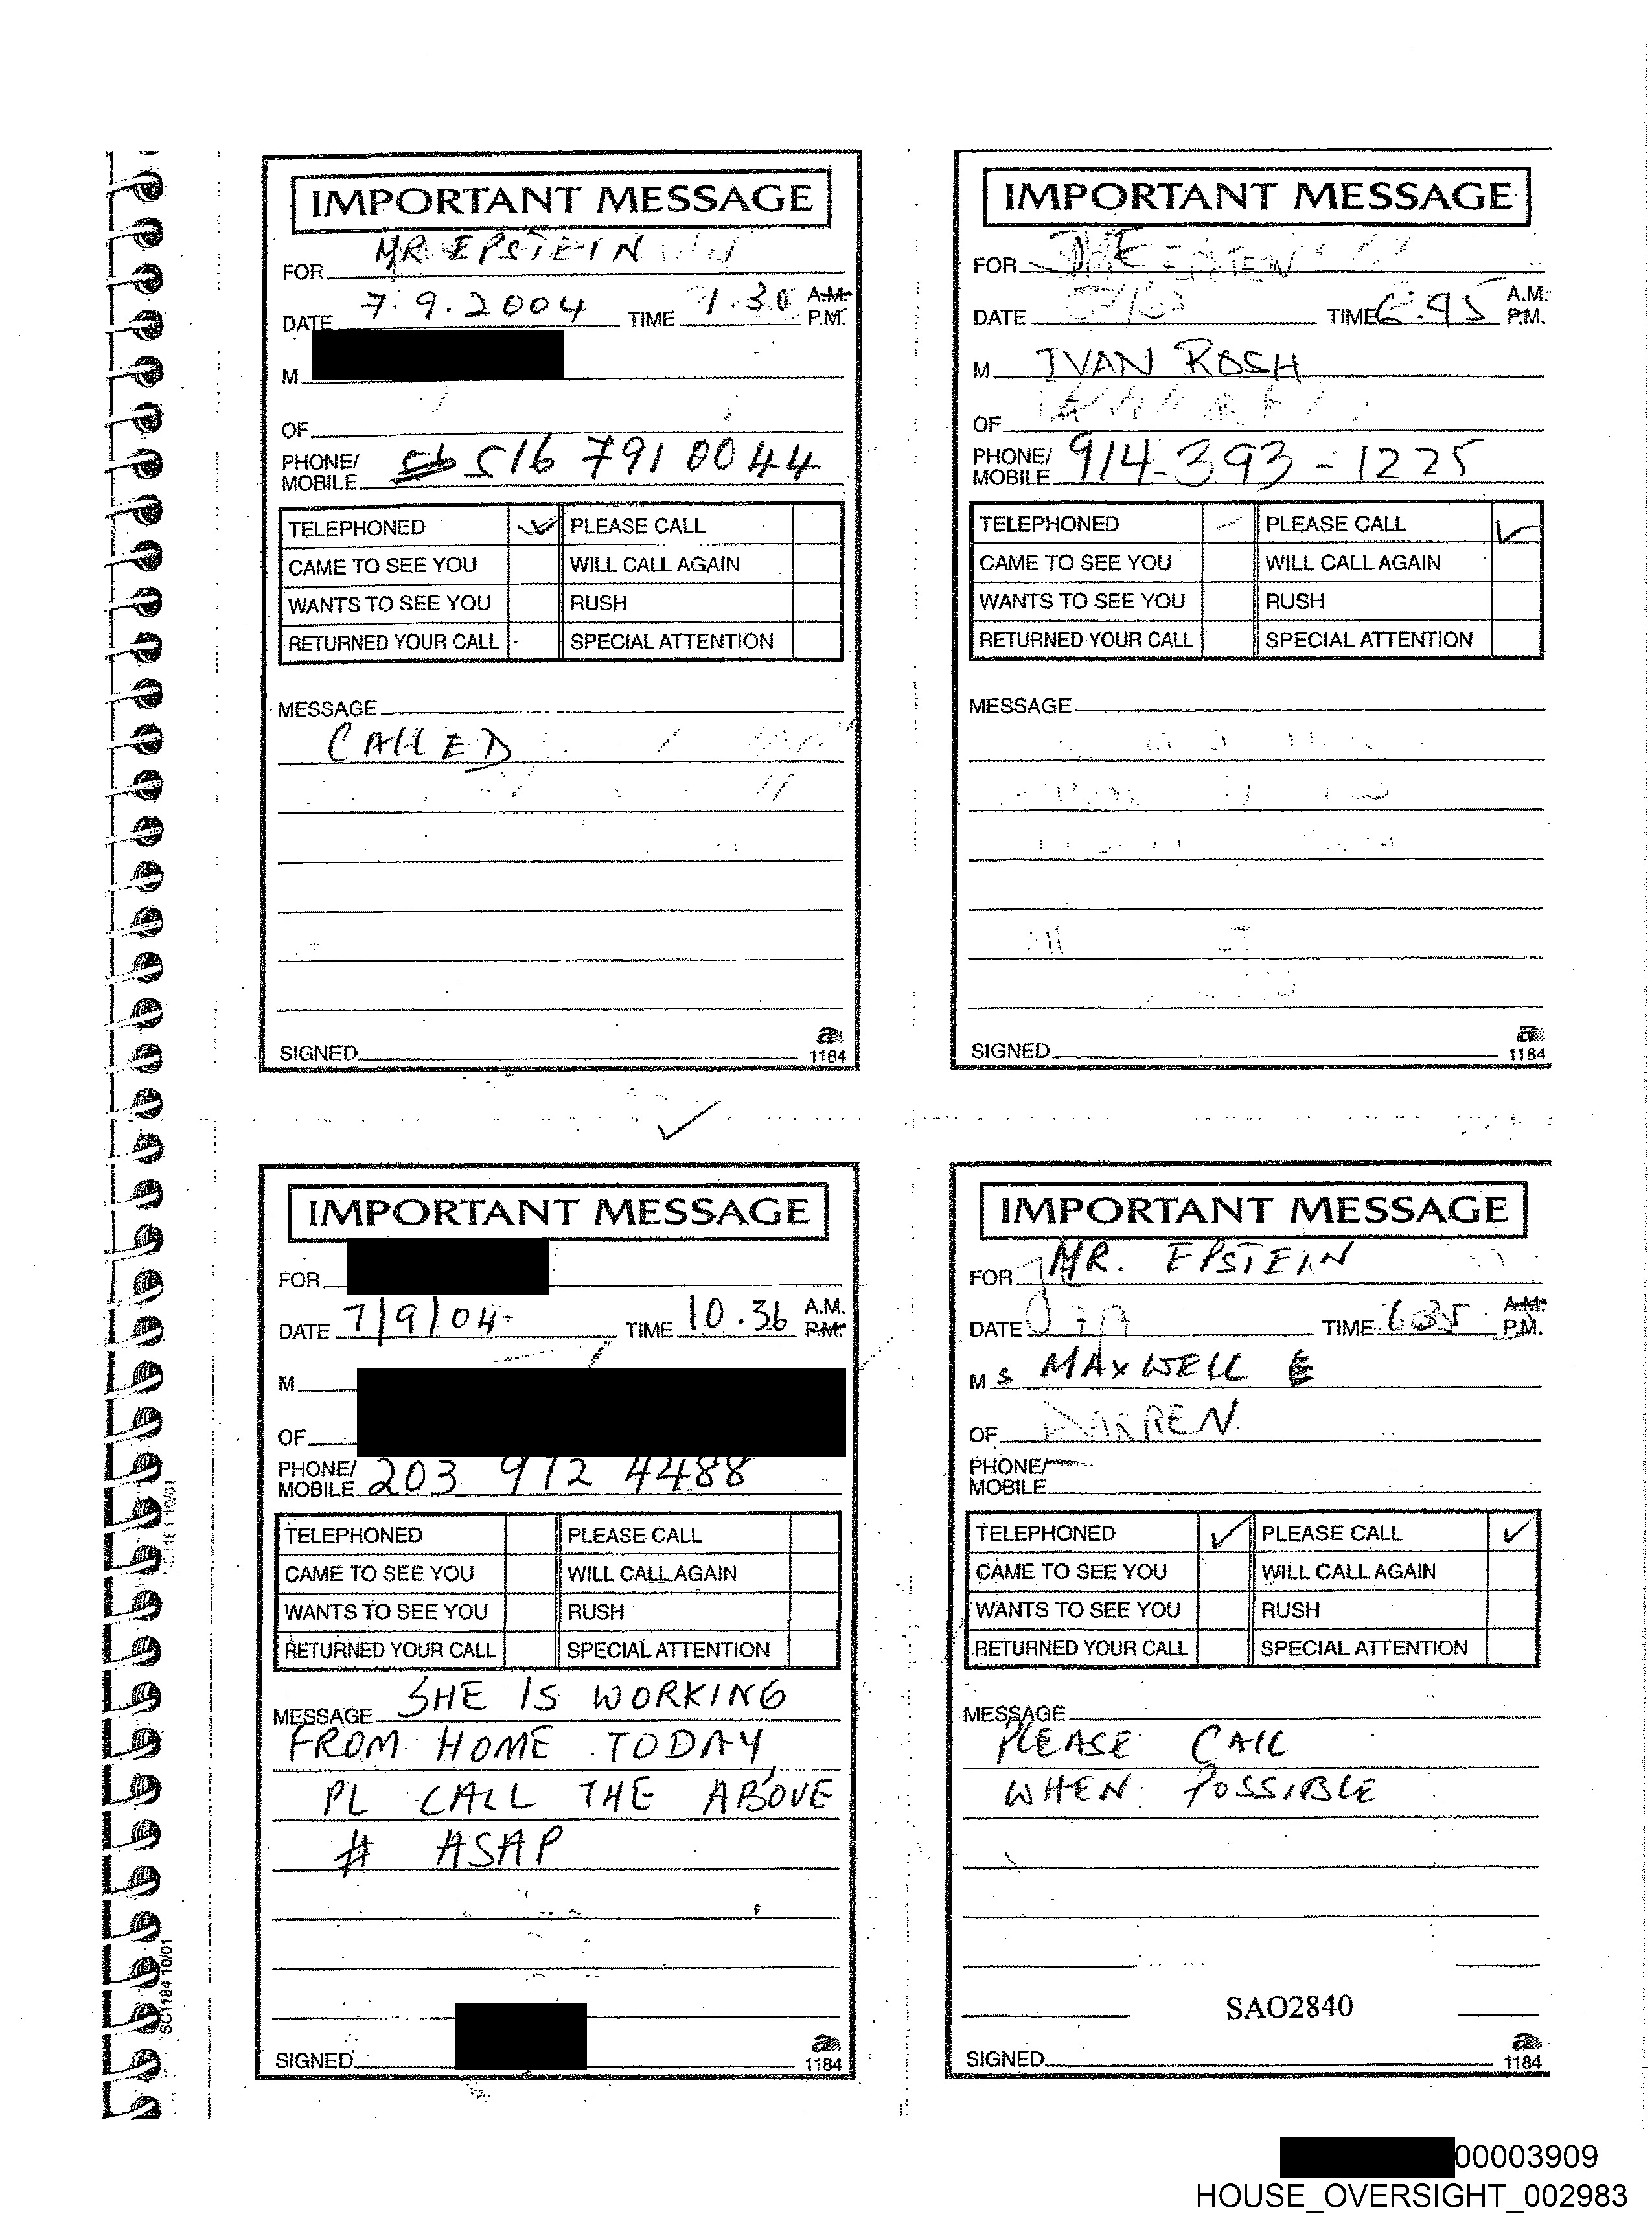 IMPORTANT MESSAGE
FOR MR EPSTEIN
DATE 7.9.2004 TIME 1.30 A.M. P.M.
M
OF
PHONE/ MOBILE 516 791 0044
TELEPHONED PLEASE CALL
CAME TO SEE YOU WILL CALL AGAIN
WANTS TO SEE YOU RUSH
RETURNED YOUR CALL SPECIAL ATTENTION
MESSAGE
CALLED
SIGNED
a
1184
IMPORTANT MESSAGE
FOR
DATE TIME 6:45 A.M. P.M.
M IVAN ROSH
OF
PHONE/ MOBILE 914-393-1225
TELEPHONED PLEASE CALL
CAME TO SEE YOU WILL CALL AGAIN
WANTS TO SEE YOU RUSH
RETURNED YOUR CALL SPECIAL ATTENTION
MESSAGE
SIGNED
a
1184
IMPORTANT MESSAGE
FOR
DATE 7/9/04 TIME 10.36 A.M. P.M.
M
OF
PHONE/ MOBILE 203 972 4488
TELEPHONED PLEASE CALL
CAME TO SEE YOU WILL CALL AGAIN
WANTS TO SEE YOU RUSH
RETURNED YOUR CALL SPECIAL ATTENTION
MESSAGE SHE IS WORKING
FROM HOME TODAY,
PL CALL THE ABOVE
# ASAP
SIGNED
a
1184
SC1184 10/01
IMPORTANT MESSAGE
FOR MR. EPSTEIN
DATE TIME 635 A.M. P.M.
MS MAXWELL
OF DARREN
PHONE/ MOBILE
TELEPHONED PLEASE CALL
CAME TO SEE YOU WILL CALL AGAIN
WANTS TO SEE YOU RUSH
RETURNED YOUR CALL SPECIAL ATTENTION
MESSAGE
PLEASE CALL
WHEN POSSIBLE
SAO2840
SIGNED
a
1184
00003909
HOUSE_OVERSIGHT_002983